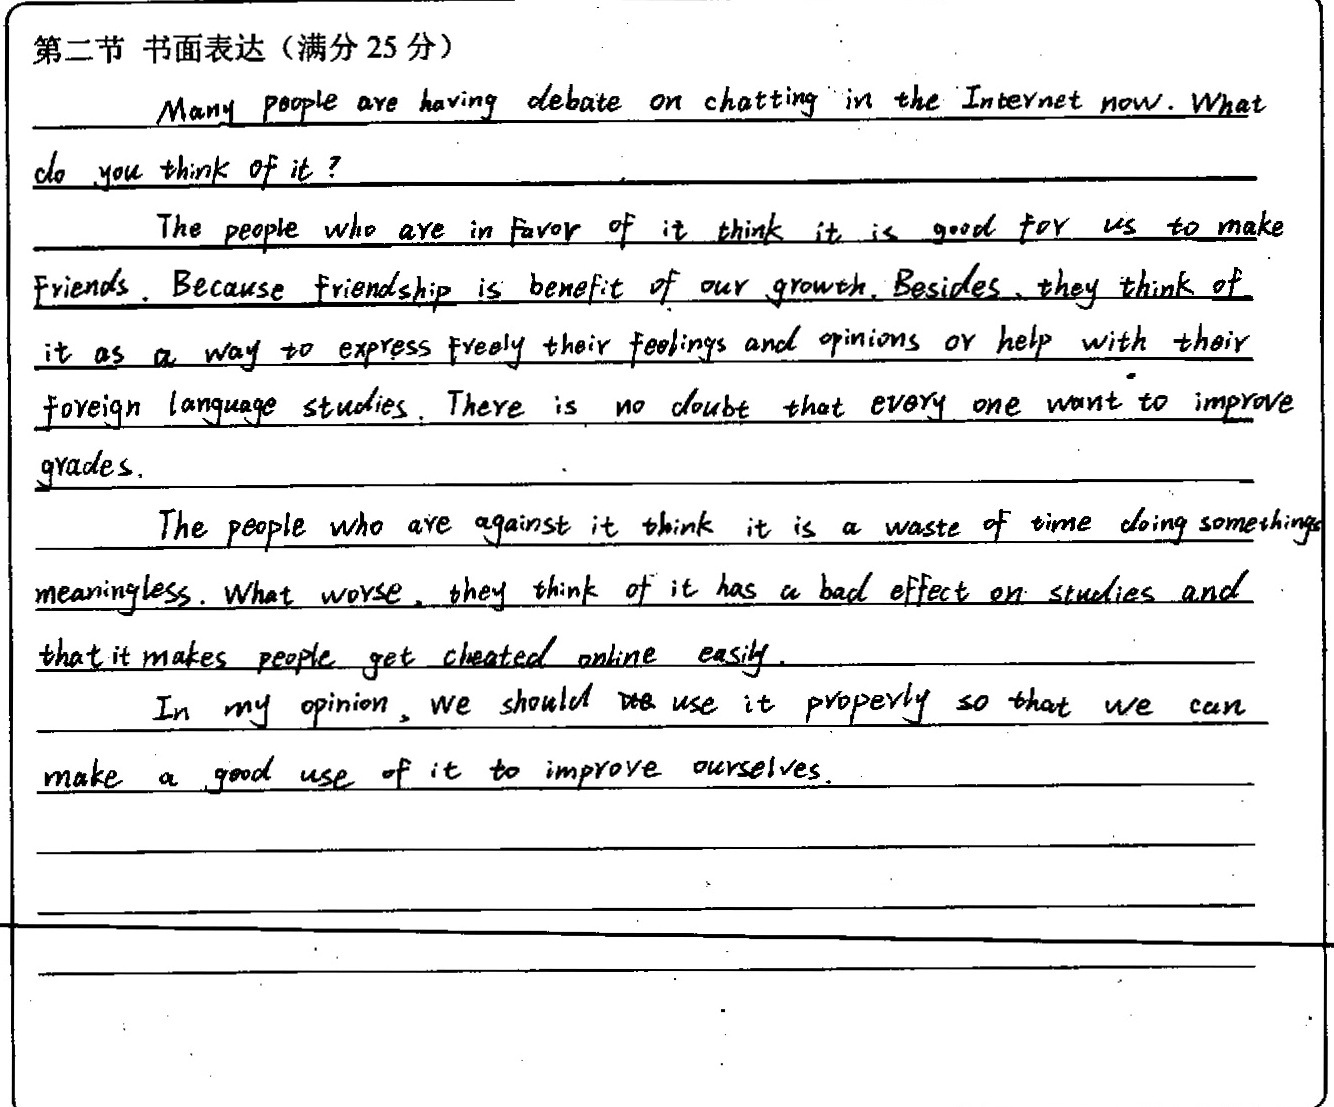 第二节 书面表达（满分 25 分）
Many people are having debate on chatting in the Internet now. What
do you think of it?
The people who are in favor of it think it is good for us to make
friends. Because friendship is benefit of our growth. Besides, they think of
it as a way to express freely their feelings and opinions or help with their
foreign language studies. There is no doubt that every one want to improve
grades.
The people who are against it think it is a waste of time doing somethings
meaningless. What worse, they think of it has a bad effect on studies and
that it makes people get cheated online easily.
In my opinion, we should use it properly so that we can
make a good use of it to improve ourselves.